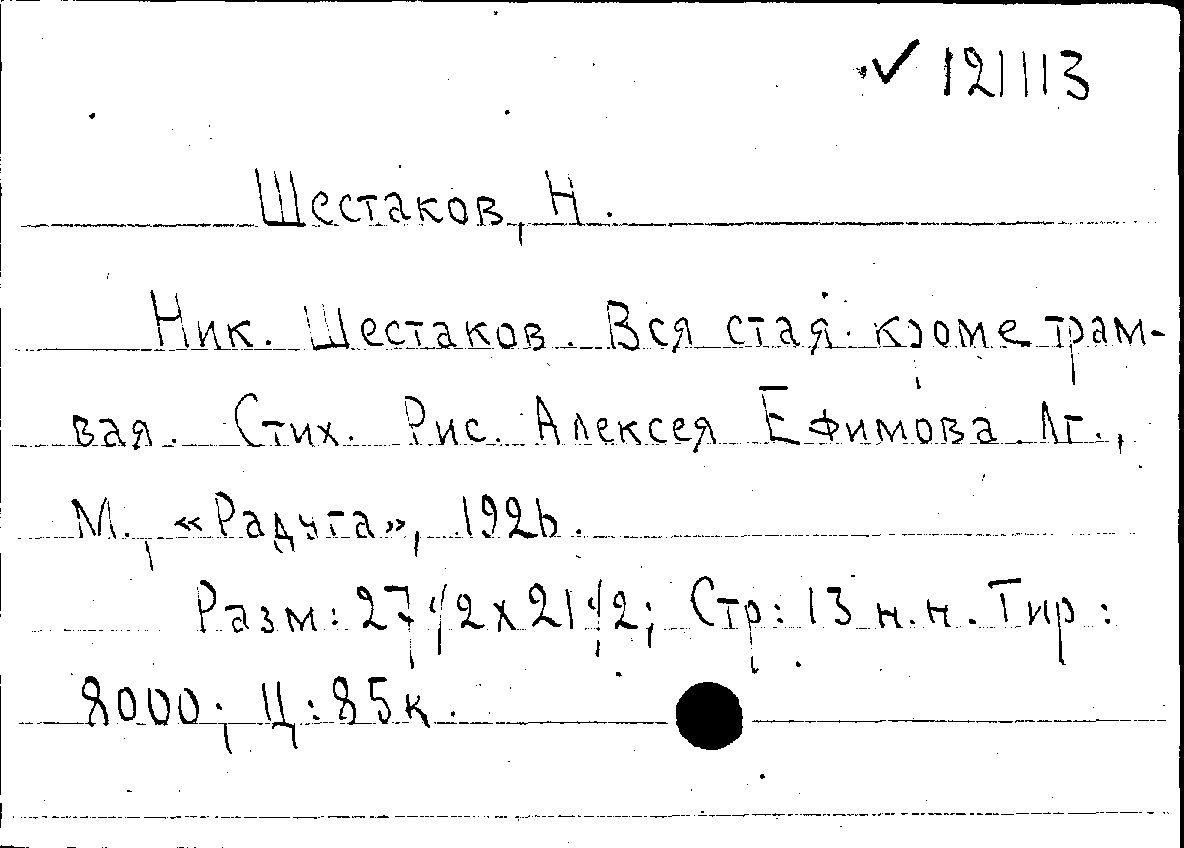 ✓ 121113
Шестаков, Н.
Ник. Шестаков. Вся стая кроме трам-
вая. Стих. Рис. Алексея Ефимова. Лг.,
М., «Радуга», 1926.
Разм: 27 1/2 x 21 1/2; Стр: 13 н.н. Тир:
8000; Ц: 85 к.